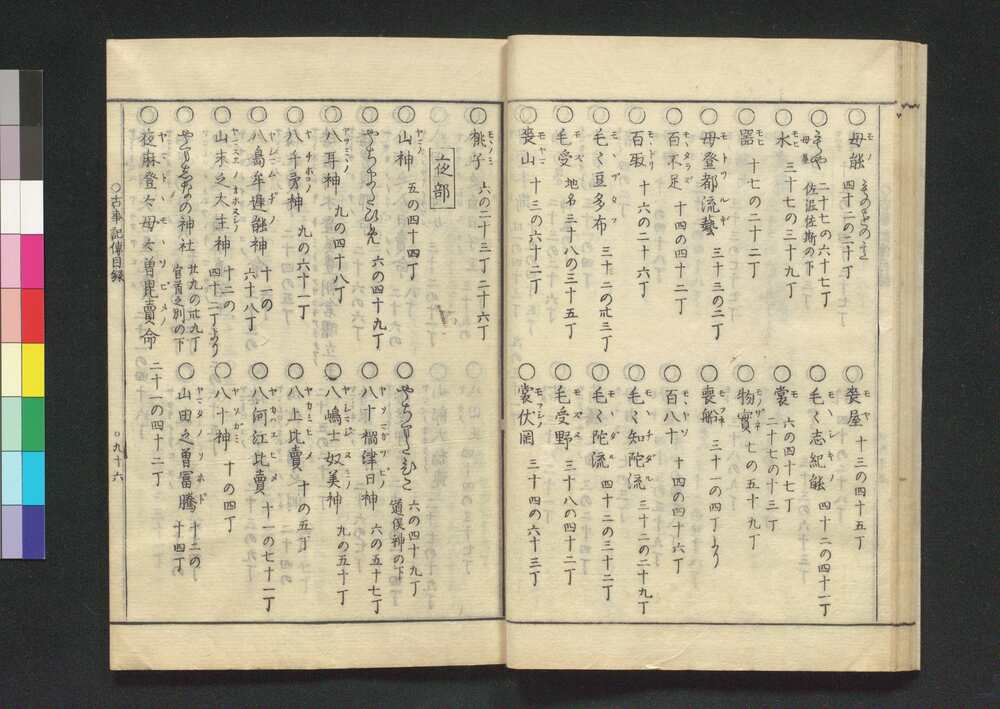 ○母能 四十二の二十丁
○もや 二十七の六十七丁
母屋 佐派佐斯の下
○水 三十七の三十九丁
○器 十七の二十二丁
○母登都流藝 三十三の二丁
○百不足 十四の四十二丁
○百取 十六の二十六丁
○毛〻豆多布 三十二の卅三丁
○毛受 地名三十八の三十五丁
○喪山 十三の六十二丁
○喪屋 十三の四十五丁
○毛〻志紀能 四十二の四十一丁
○裳 六の四十七丁
二十七の十三丁
○物實 七の五十九丁
○喪船 三十一の四丁より
○百八十 十四の四十六丁
○毛〻知陀流 三十二の二十九丁
○毛〻陀流 四十二の三十二丁
○毛受野 三十八の四十二丁
○裳伏岡 三十四の六十三丁
○桃子 六の二十三丁二十六丁
夜部
○山神 五の四十四丁
○やちまたひめ 六の四十九丁
○八耳神 九の四十八丁
○八千矛神 九の六十一丁
○八島牟遅能神 十一の
六十八丁
○山末之大主神 十二の
四十二丁より
の神社 廿九の卅九丁
○夜麻登〻母〻曽毘賣命 二十一の四十二丁
○やちまたひこ 六の四十九丁
道俣神の下
○八十禍津日神 六の五十七丁
○八嶋士奴美神 九の五十丁
○八上比賣 十の五丁
○八河江比賣 十一の七十一丁
○八十神 十の四丁
○山田之曽富騰 十二の
十四丁
○古事記傳目録
○九十六